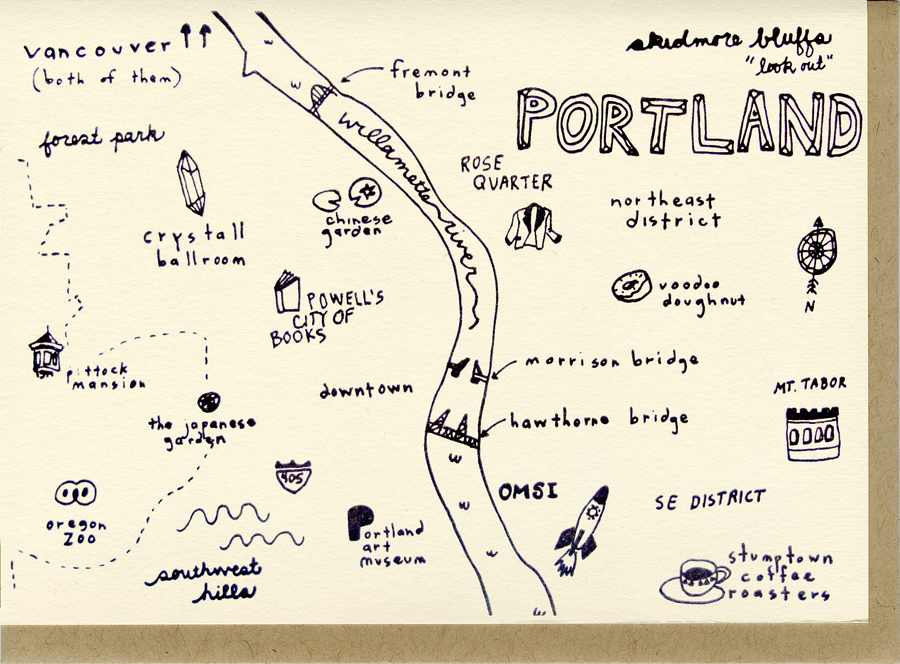 vancouver
(both of them)
skidmore bluffs
"look out"
fremont
bridge
PORTLAND
forest park
willamette river
ROSE
QUARTER
northeast
district
chinese
garden
crystall
ballroom
N
voodoo
doughnut
POWELL'S
CITY OF
BOOKS
pittock
mansion
morrison bridge
downtown
MT. TABOR
hawthorne bridge
the japanese
garden
405
OMSI
SE DISTRICT
oregon
zoo
Portland
art
museum
southwest
hills
stumptown
coffee
roasters